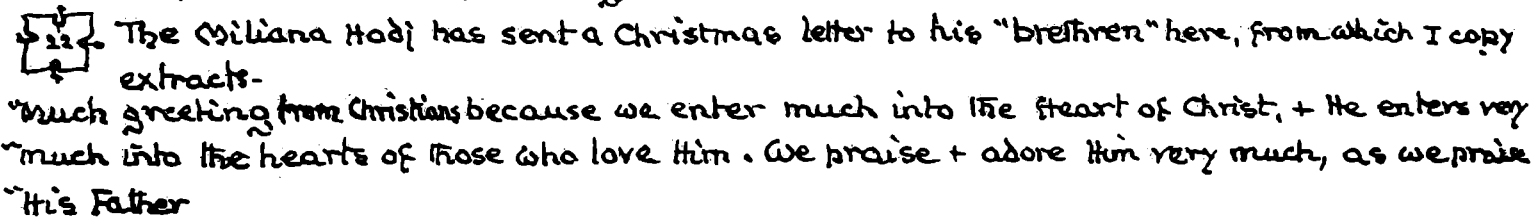 22 The Miliana Hadj has sent a Christmas letter to his "brethren" here, from which I copy
extracts-
"Much greeting from Christians because we enter much into the Heart of Christ, + He enters very
"much into the hearts of those who love Him. We praise + adore Him very much, as we praise
"His Father